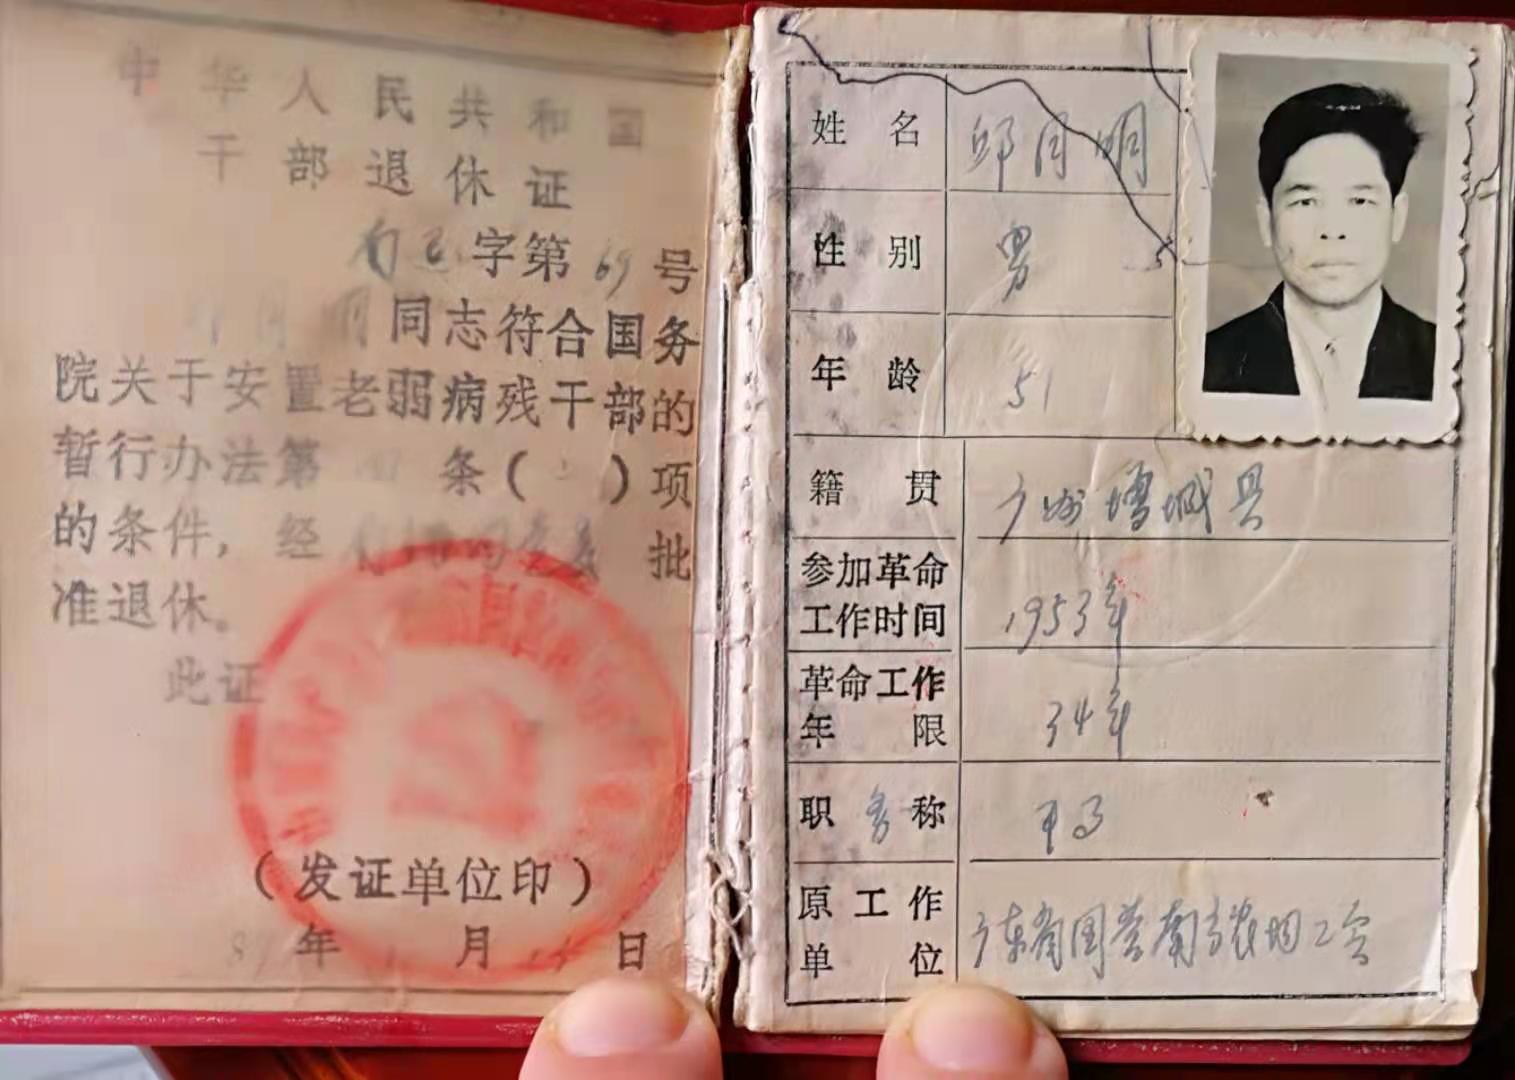 中华人民共和国
干部退休证
字第69号
邱月明同志符合国务
院关于安置老弱病残干部的
暂行办法第 条( )项
的条件，经 批
准退休。
此证
(发证单位印)
年 月 日
姓名 邱月明
性别 男
年龄 51
籍贯 广州增城县
参加革命
工作时间 1953年
革命工作
年限 34年
职务称 干部
原工作
单位 广东省国营南方农场工会